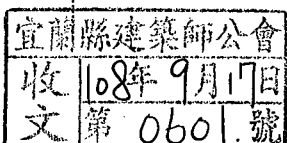 宜蘭縣建築師公會
收文
108年9月17日
第0601.號